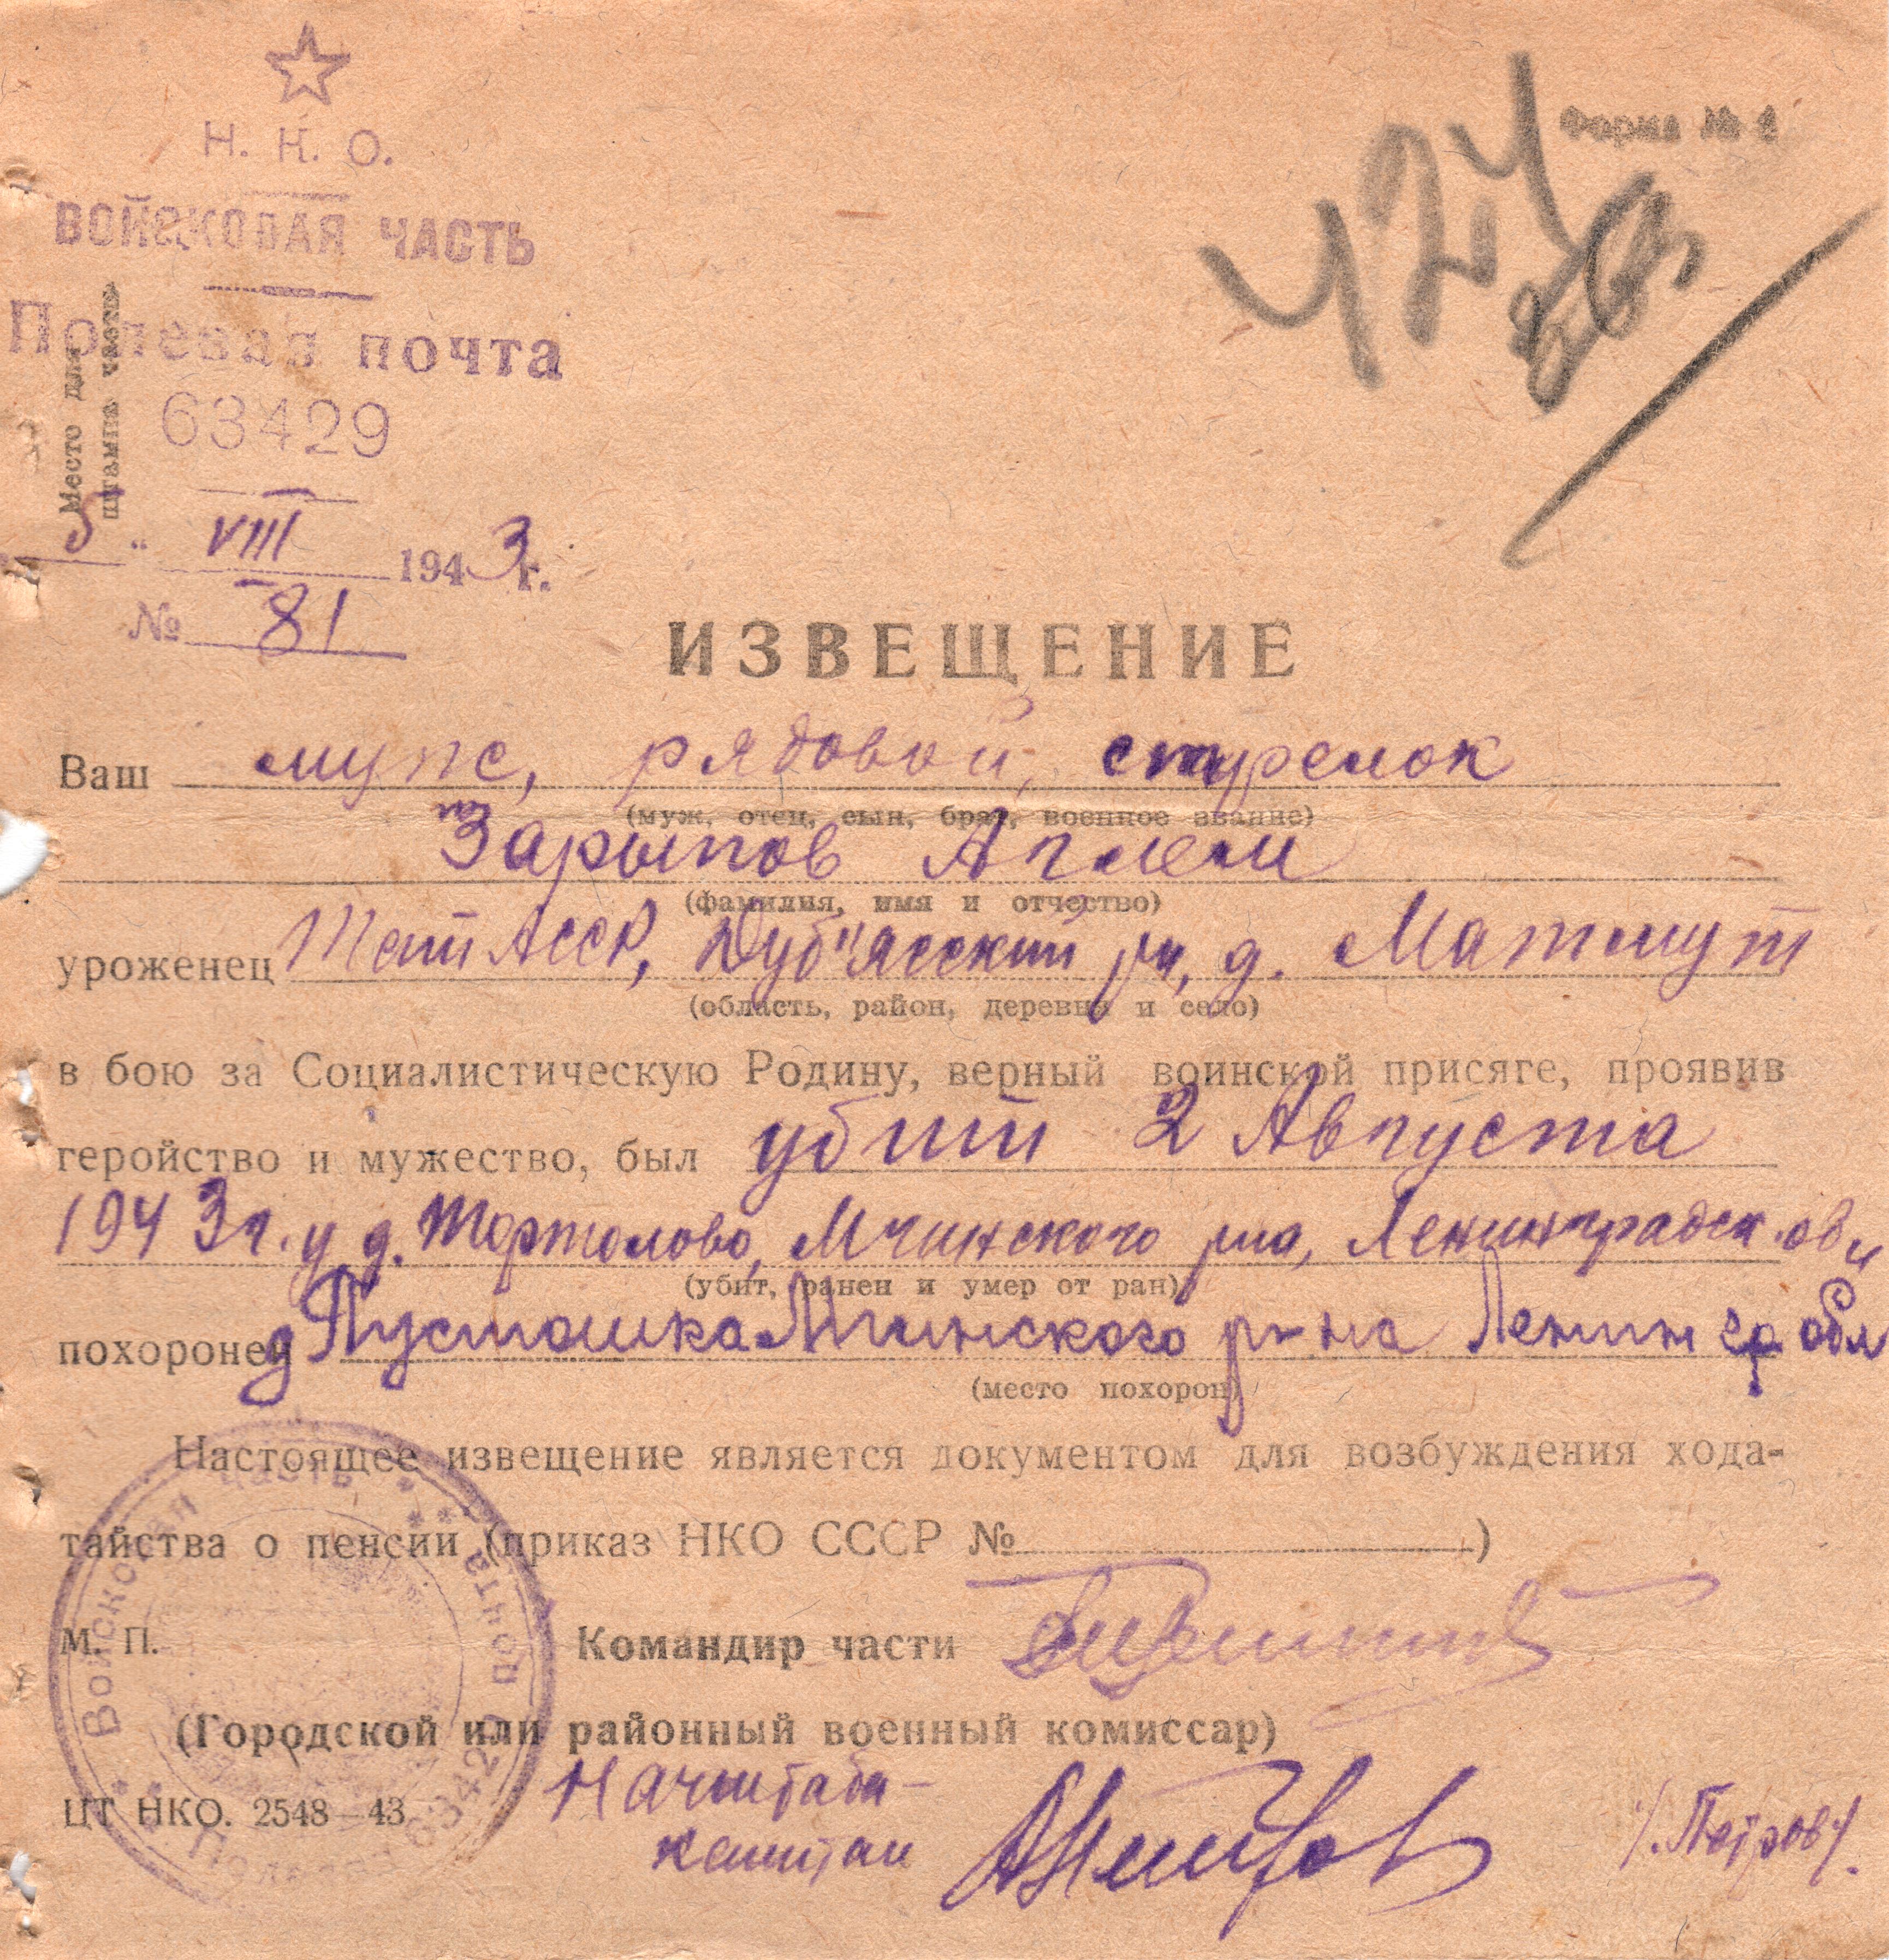 Н. К. О.
ВОЙСКОВАЯ ЧАСТЬ
Полевая почта
63429
Место для
штампа части
5 " VIII 1943 г.
№ 81
Форма № 2
424
ИЗВЕЩЕНИЕ
Ваш муж, рядовой, стрелок
(муж, отец, сын, брат, военное звание)
Зарыпов Аглем
(фамилия, имя и отчество)
уроженец ТатАССР, Дуб"ясский рн, д. Матмут
(область, район, деревня и село)
в бою за Социалистическую Родину, верный воинской присяге, проявив
геройство и мужество, был убит 2 Августа
1943 г. у д. Тортолово, Мгинского рна, Ленинградск. обл
(убит, ранен и умер от ран)
похоронен д Пустошка Мгинского р-на Ленингр обл
(место похорон)
Настоящее извещение является документом для возбуждения хода-
тайства о пенсии (приказ НКО СССР № )
М. П.
Командир части
(Городской или районный военный комиссар)
ЦТ НКО. 2548—43
Начштаба —
капитан /.Петров/.
Войсковая часть
Полевая почта 63429